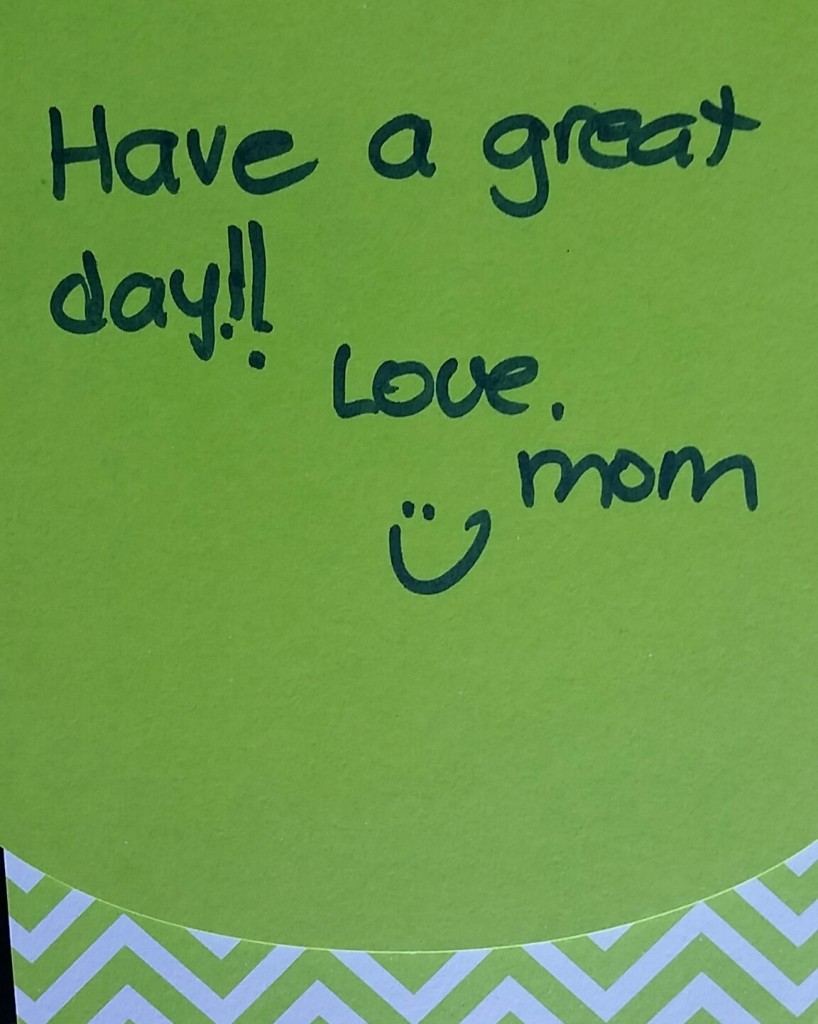 Have a great
day!!
Love.
mom